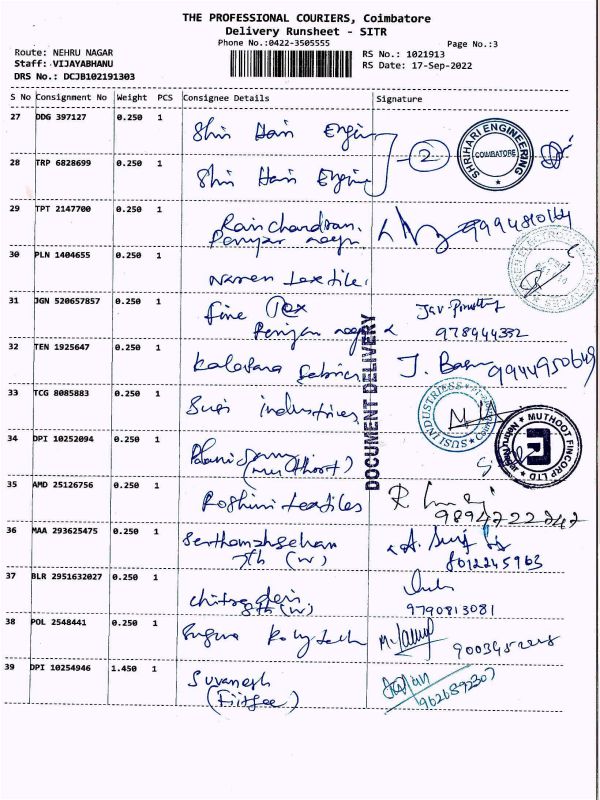 THE PROFESSIONAL COURIERS, Coimbatore
Delivery Runsheet - SITR
Phone No.:0422-3505555
Page No.:3
Route: NEHRU NAGAR
RS No.: 1021913
Staff: VIJAYABHANU
RS Date: 17-Sep-2022
DRS No.: DCJB102191303
S No Consignment No Weight PCS Consignee Details Signature
27 DDG 397127 0.250 1 Shri Hari Engin
SHRIHARI ENGINEERING
COIMBATORE
2
28 TRP 6828699 0.250 1 Shri Hari Engine
29 TPT 2147700 0.250 1 Ramchandran.
9994810164
30 PLN 1404655 0.250 1 Naren textile.
31 JGN 520657857 0.250 1 fine Tex
978944332
32 TEN 1925647 0.250 1 Kalavana fabrics
9944950649
DOCUMENT DELIVERY
33 TCG 8085883 0.250 1 Susi industries
SUSI INDUSTRIESS
34 DPI 10252094 0.250 1 Palanisamy
(Muthoot)
MUTHOOT FINCORP LTD
35 AMD 25126756 0.250 1 Roshini textiles
9894722242
36 MAA 293625475 0.250 1 Senthamzhselvan
7th (w)
8012245963
37 BLR 2951632027 0.250 1 Chitradevi
8th (w)
9790813081
38 POL 2548441 0.250 1
39 DPI 10254946 1.450 1 Suvanesh
(Fiitjee)
9626892307